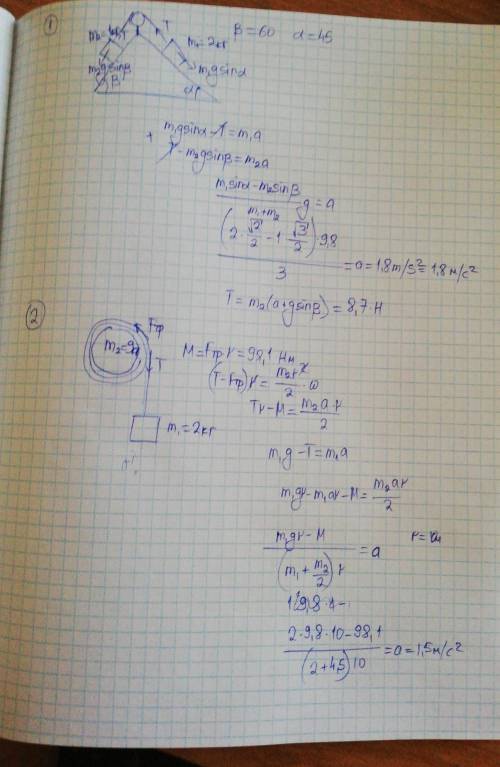 1
m₂=1кг T T m₁=2кг β=60 α=45
m₂gsinβ m₁gsinα
β α
+ m₁gsinα-T=m₁a
T-m₂gsinβ=m₂a
(m₁sinα-m₂sinβ)/(m₁+m₂) g=a
(2·√2/2-1·√3/2)·9,8/3=a=1,8m/s²=1,8м/с²
T=m₂(a+gsinβ)=8,7·Н
2
Fтр
m₂=9 T
m₁=2кг
M=Fтр r=98,1 Нм
(T-Fтр)r=m₂r²/2·ω
Tr-M=m₂a·r/2
m₁g-T=m₁a
m₁gr-m₁ar-M=m₂ar/2
(m₁gr-M)/((m₁+m₂/2)r)=a
(2·9,8·10-98,1)/((2+4,5)10)=a=1,5м/с²